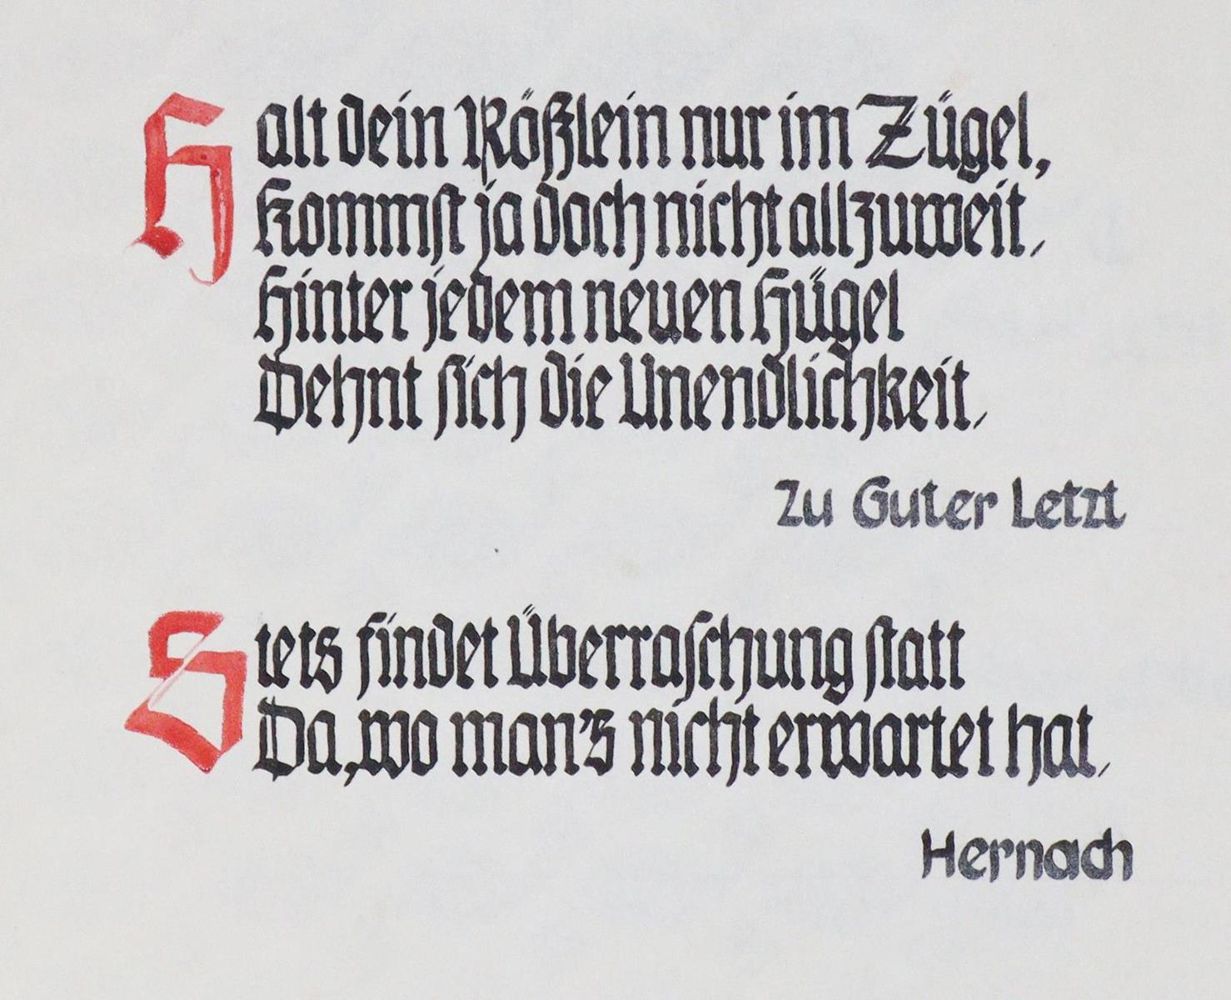 Halt dein Rößlein nur im Zügel,
Kommst ja doch nicht allzuweit.
Hinter jedem neuen Hügel
Dehnt sich die Unendlichkeit.
Zu Guter Letzt
Stets findet Überraschung statt
Da, wo man's nicht erwartet hat.
Hernach